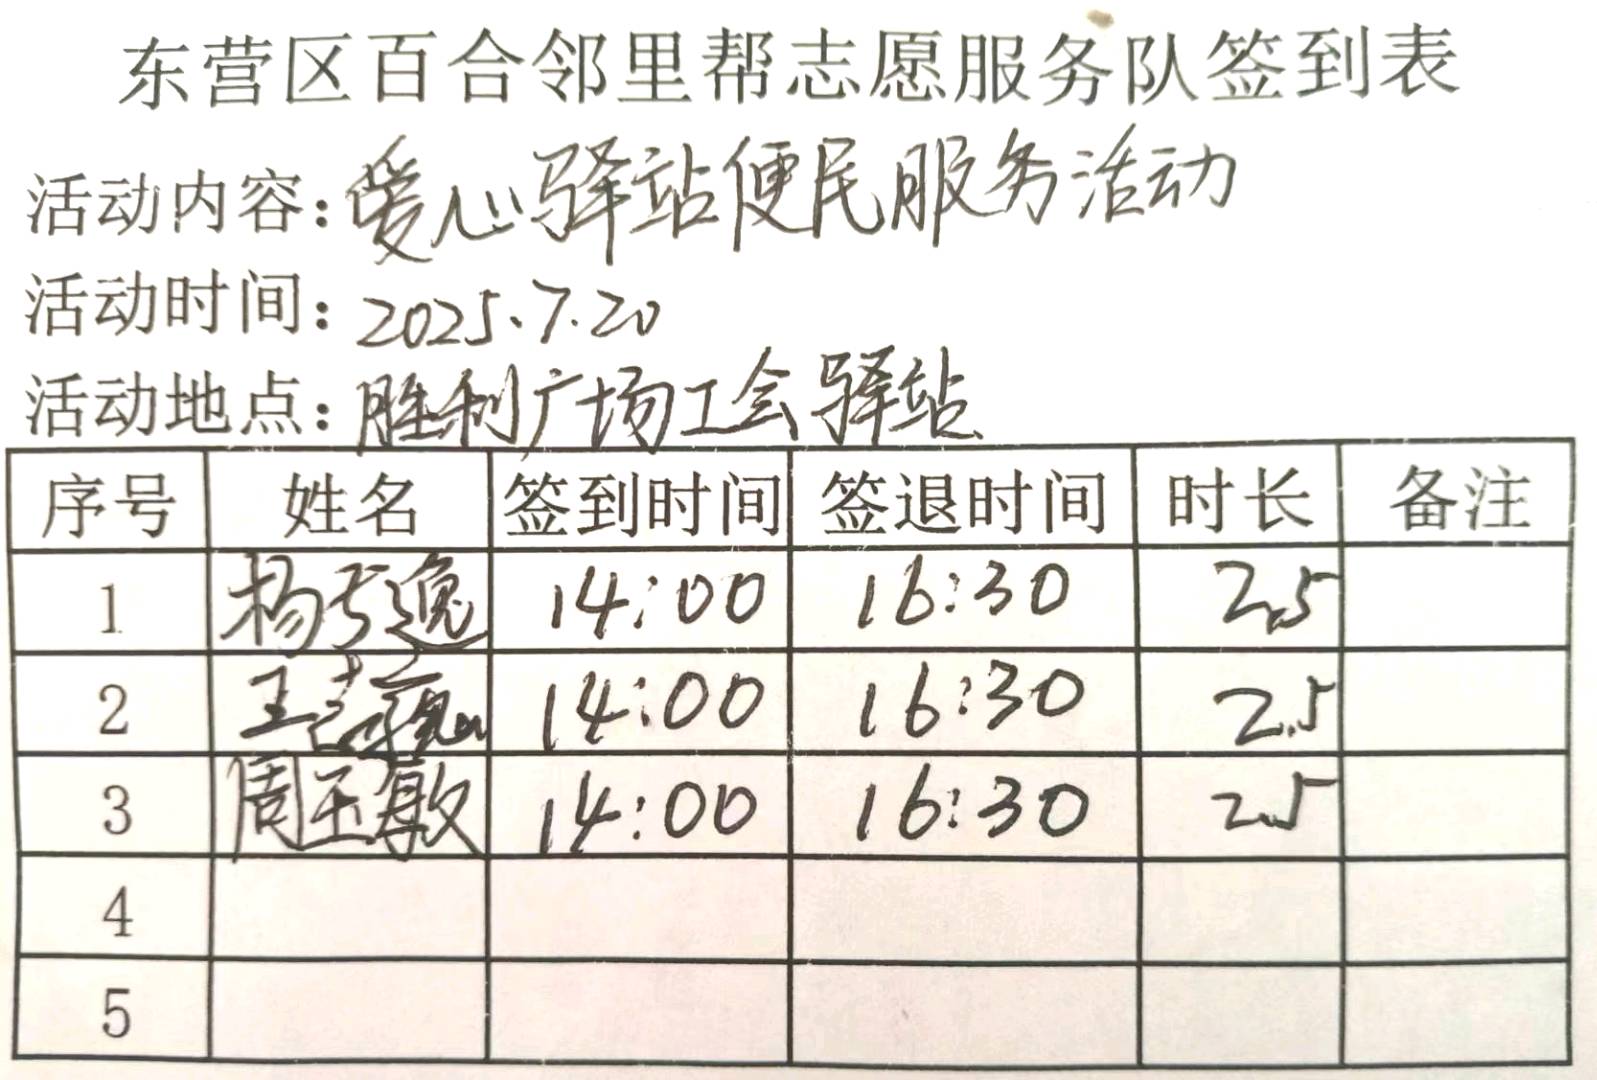 东营区百合邻里帮志愿服务队签到表
活动内容:爱心驿站便民服务活动
活动时间:2025.7.20
活动地点:胜利广场工会驿站
序号 姓名 签到时间 签退时间 时长 备注
1 杨 逸 14:00 16:30 2.5
2 王 14:00 16:30 2.5
3 周玉敏 14:00 16:30 2.5
4
5